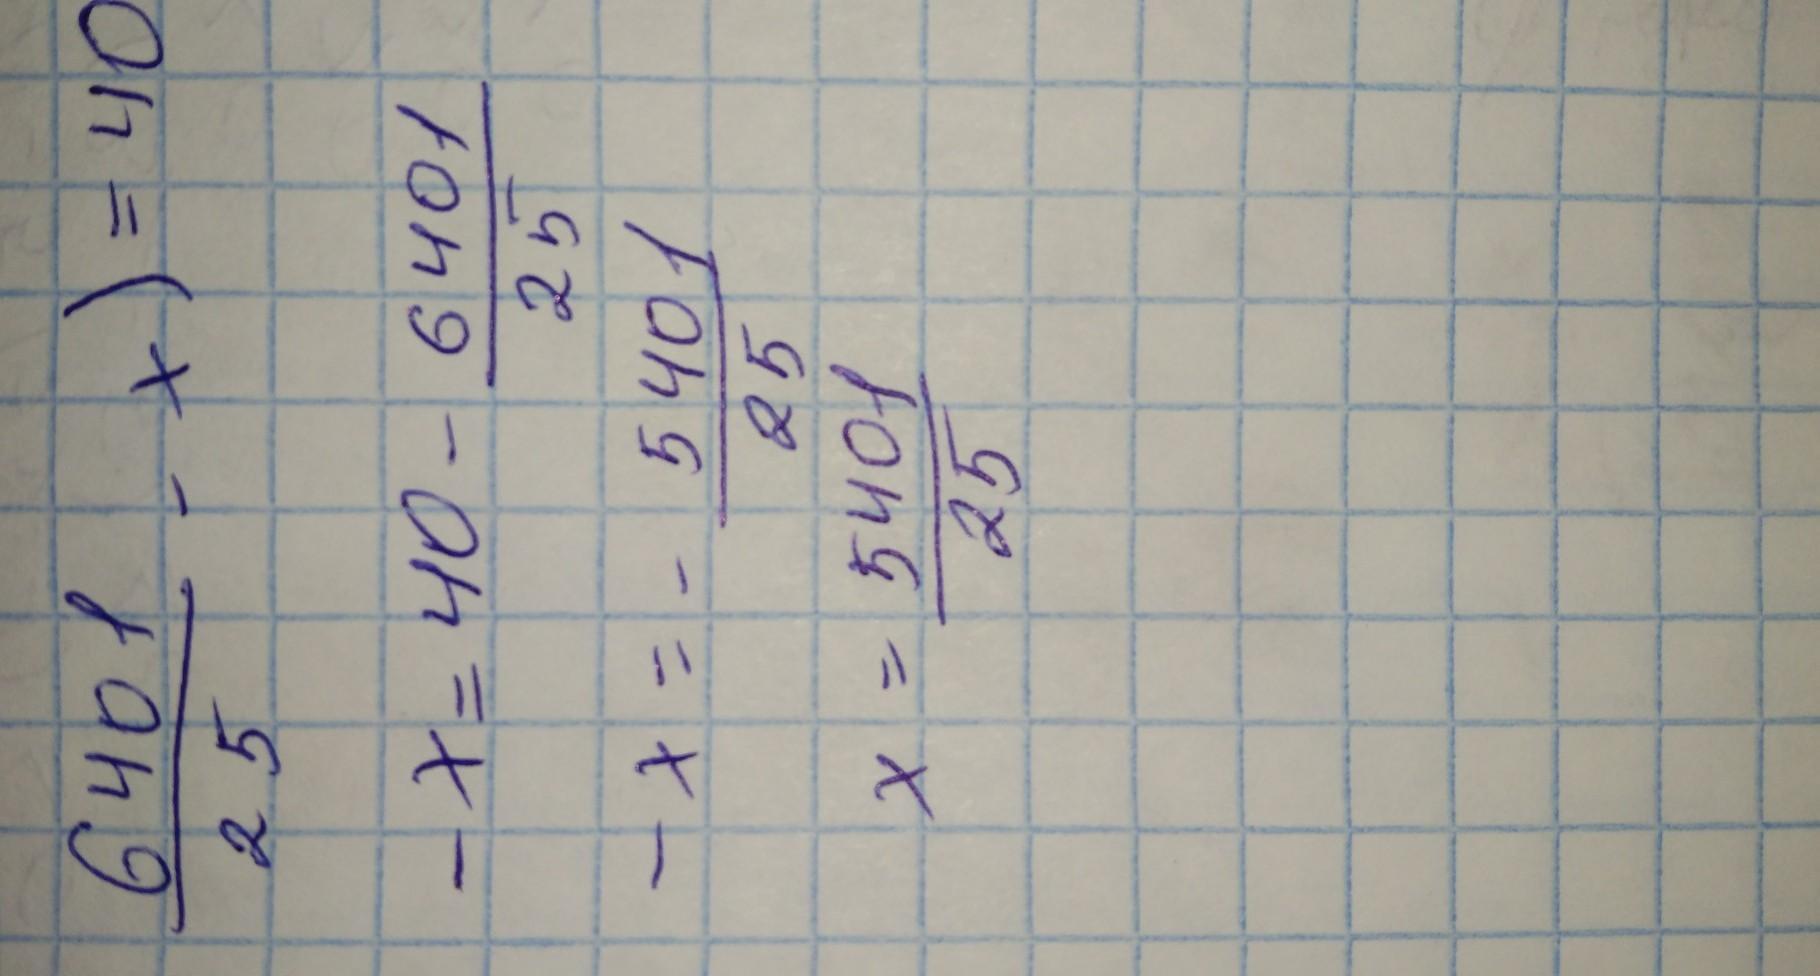 6401/25 - x) = 40
-x = 40 - 6401/25
-x = - 5401/25
x = 5401/25